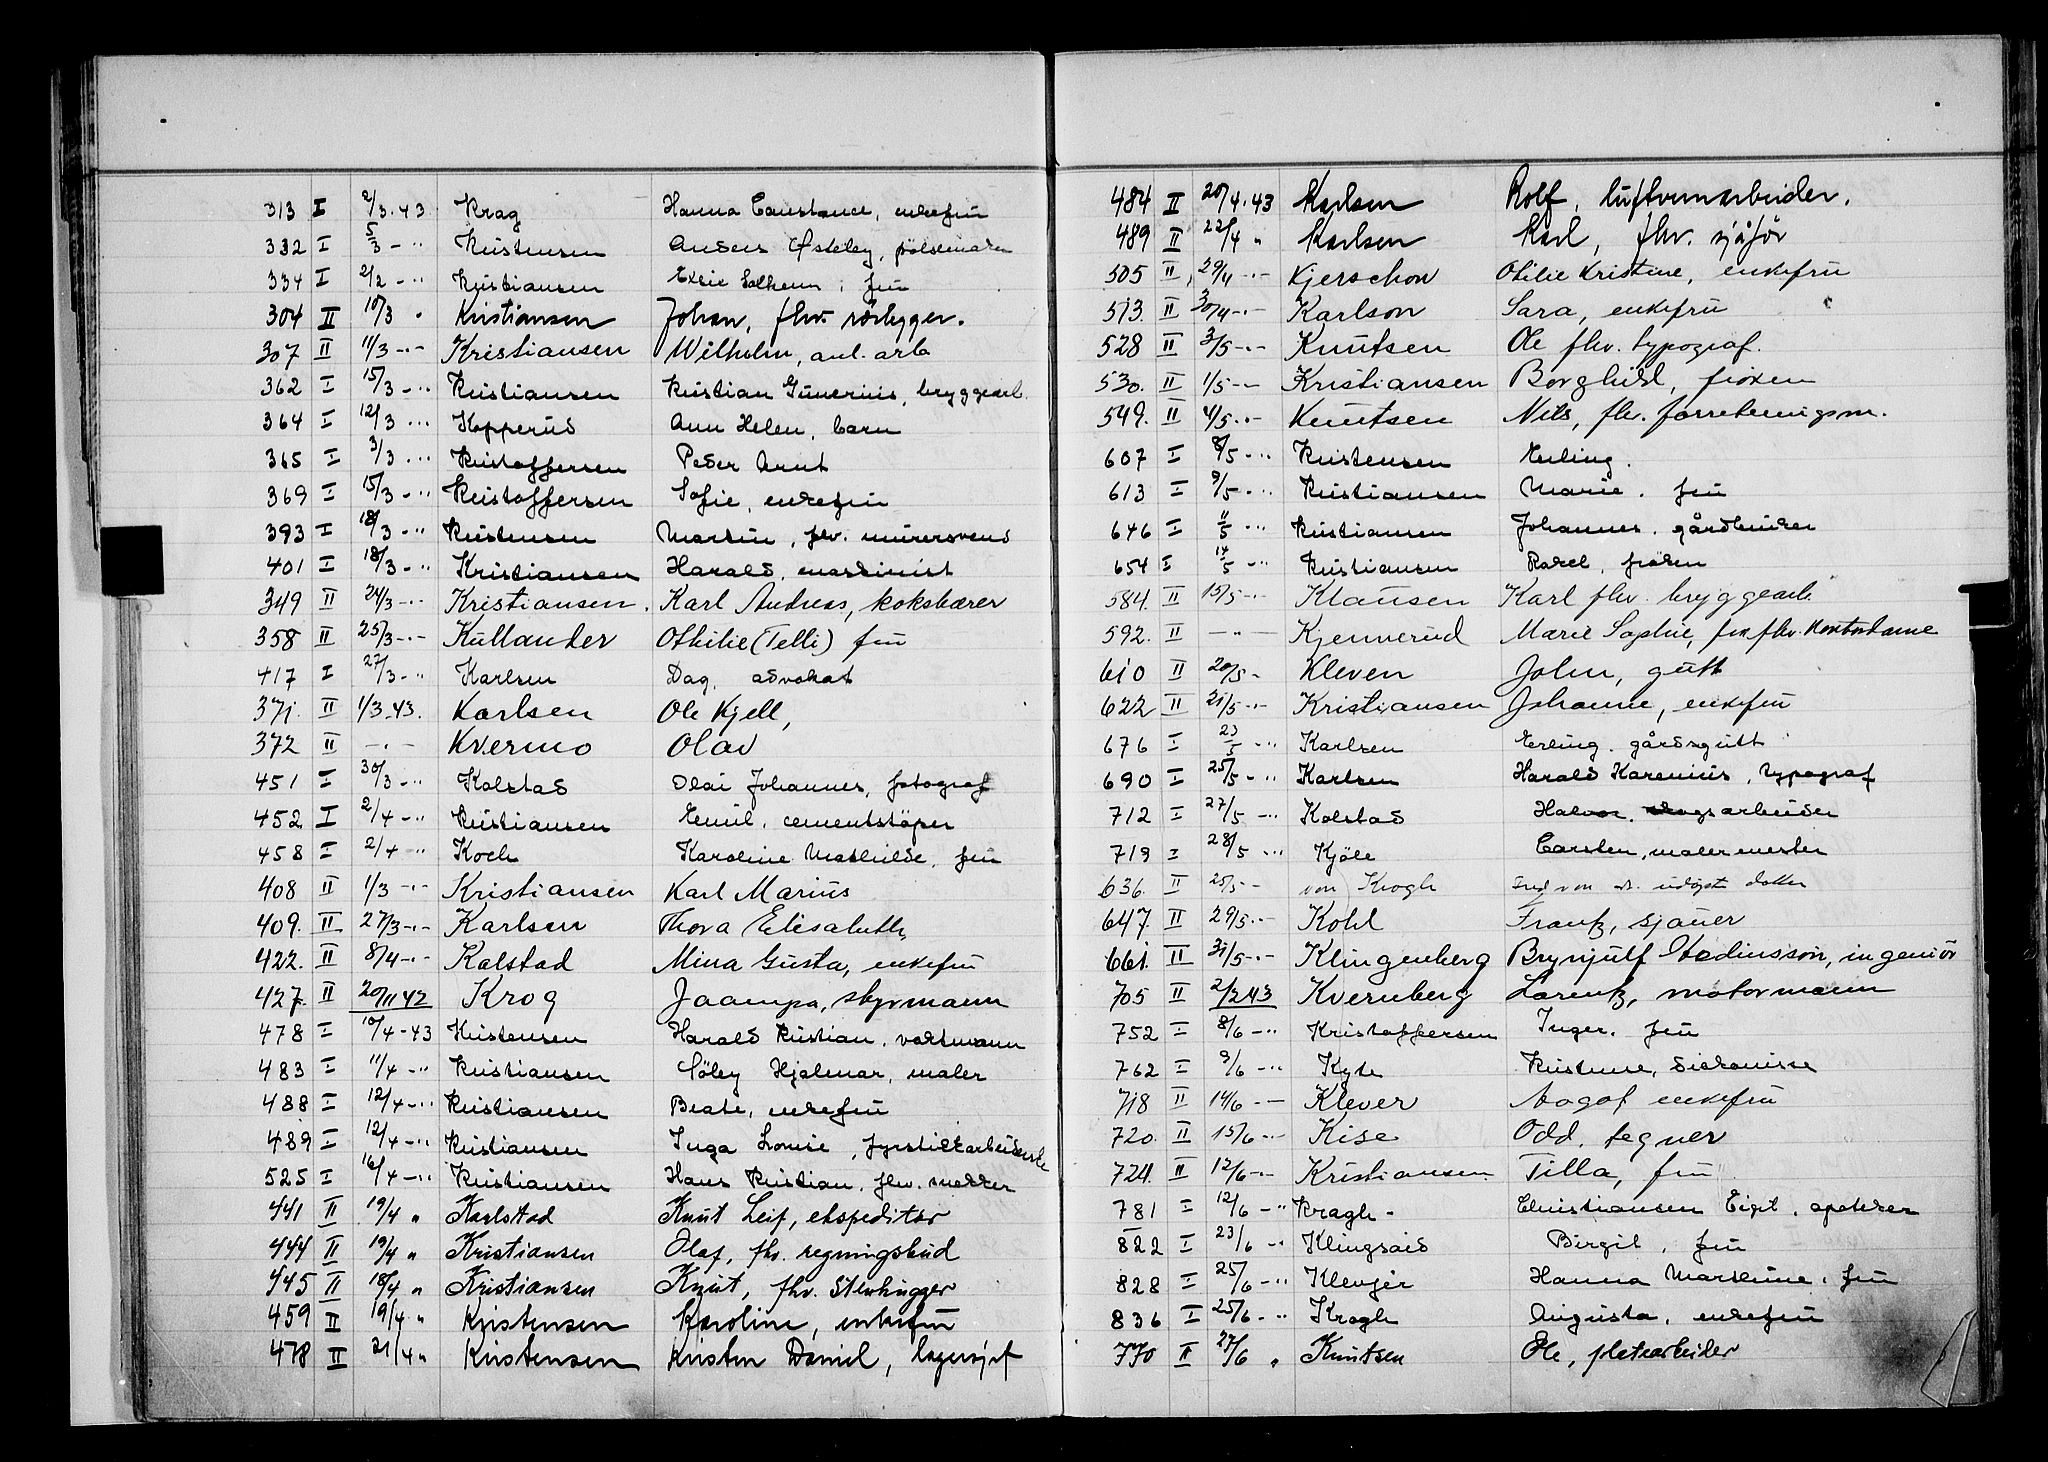 313 I 2/3.43 Krag Hanna Constance, enkefru
332 I 5/3 - " Kristensen Anders Østeby, pölsemaker
334 I 2/2 - " Kristiansen Elsie Solheim, fru
304 II 10/3 " Kristiansen Johan, fhv. rörlegger.
307 II 11/3 - " - Kristiansen Wilhelm, anl. arb
362 I 15/3 - " Kristiansen Kristian Gunerius, bryggearb.
364 I 12/3 - " Kopperud Ann Helen, barn
365 I 3/3 - " Kristoffersen Peder Arnt
369 I 15/3 - " Kristoffersen Sofie, enkefru
393 I 18/3 - " Kristensen Martin, fhv. murersvend
401 I 18/3 - " Kristiansen Harald, maskinist
349 II 24/3 - " - Kristiansen. Karl Andreas, koksbærer
358 II 25/3 - " - Kullander Othilie (Telli) fru
417 I 27/3 - " Karlsen Dag, advokat
371. II 1/3.43. Karlsen Ole Kjell,
372 II - " - Kvermo Olav
451 I 30/3 - " Kolstad Olai Johannes, fotograf
452 I 2/4 - " Kristiansen Emil, cementstöper
458 I 2/4 - " Koch Karoline Mathilde, fru
408 II 1/3 - " - Kristiansen Karl Marius
409. II 27/3 - " - Karlsen Thora Elisabeth
422. II 8/4 - " - Kolstad Mina Gusta, enkefru
427. II 20/11 42 Krog styrmann
478 I 10/4 - 43 Kristensen Harald Kristian, vaktmann
483 I 11/4 - " Kristiansen Söley Hjalmar, maler
488 I 12/4 - " Kristiansen Beate, enkefru
489 I 12/4 - " Kristiansen Inga Lovise, fyrstikkarbeiderske
525 I 16/4 - " Kristiansen Hans Kristian, fhv. snekker
441 II 19/4 " Karlstad Knut Leif, ekspeditör
444 II 19/4 " Kristiansen Olaf, fhv. regningsbud
445 II 18/4 " Kristiansen Knut, fhv. Stenhugger
459 II 19/4 " Kristensen Karoline, enkefru
478 II 21/4 " Kristensen Kristen Daniel, lagersjef
484 II 20/4.43 Karlsen Rolf, luftvernarbeider.
489 II 22/4 " Karlsen Karl, fhv. sjåför
505 II 29/4 - " - Kjerschow Othilie Kristine, enkefru
513. II 30/4 - " - Karlson Sara, enkefru
528 II 3/5 - " - Knutsen Ole fhv. typograf.
530. II 1/5 - - Kristiansen Borghild, fröken
549. II 4/5 - " - Knutsen Nils, fhv. forretningsm.
607 I 8/5 - " Kristensen Erling.
613 I 9/5 - " Kristiansen Marie. fru
646 I 11/5 - " Kristiansen Johannes. gårdbruker
654 I 14/5 - " Kristiansen Rakel, fröken
584. II 15/5 - " - Klausen Karl fhv. bryggearb.
592. II - " - Kjennerud Marie Sophie, frk fhv. kontordame
610 II 20/5 - Kleven John, gutt
622 II 21/5 - " - Kristiansen Johanne, enkefru
676 I 23/5 - " Karlsen Erling. gårdsgutt
690 I 25/5 - " Karlsen Harald Karenius, typograf
712 I 27/5 - " Kolstad Halvor. skogsarbeider
719 I 28/5 - " Kjöle Carsten, malermester
636. II 25/5 - von Krogh udöpt datter
647. II 29/5 - - Kohl Frantz, sjauer
661. II 31/5 - " - Klingenberg Brynjulf ingeniör
705 II 2/2 43 Kvernberg Lorentz, motormann
752 I 8/6 - " Kristoffersen Inger. fru
762 I 9/6 - " Kyte Kristine, diakonisse
718 II 14/6 - - Klever Aagot enkefru
720. II 15/6 - " - Kise Odd, tegner
724. II 12/6 - " - Kristiansen Tilla, fru
781 I 12/6 - " Kragh - Christiansen Eigil, apoteker
822 I 23/6 - " Klingsaid Birgit, fru
828 I 25/6 - " Klevjer Hanna Marthine, fru
836 I 25/6 - " Kragh Augusta, enkefru
770 II 27/6 " Knutsen Ole, platearbeider